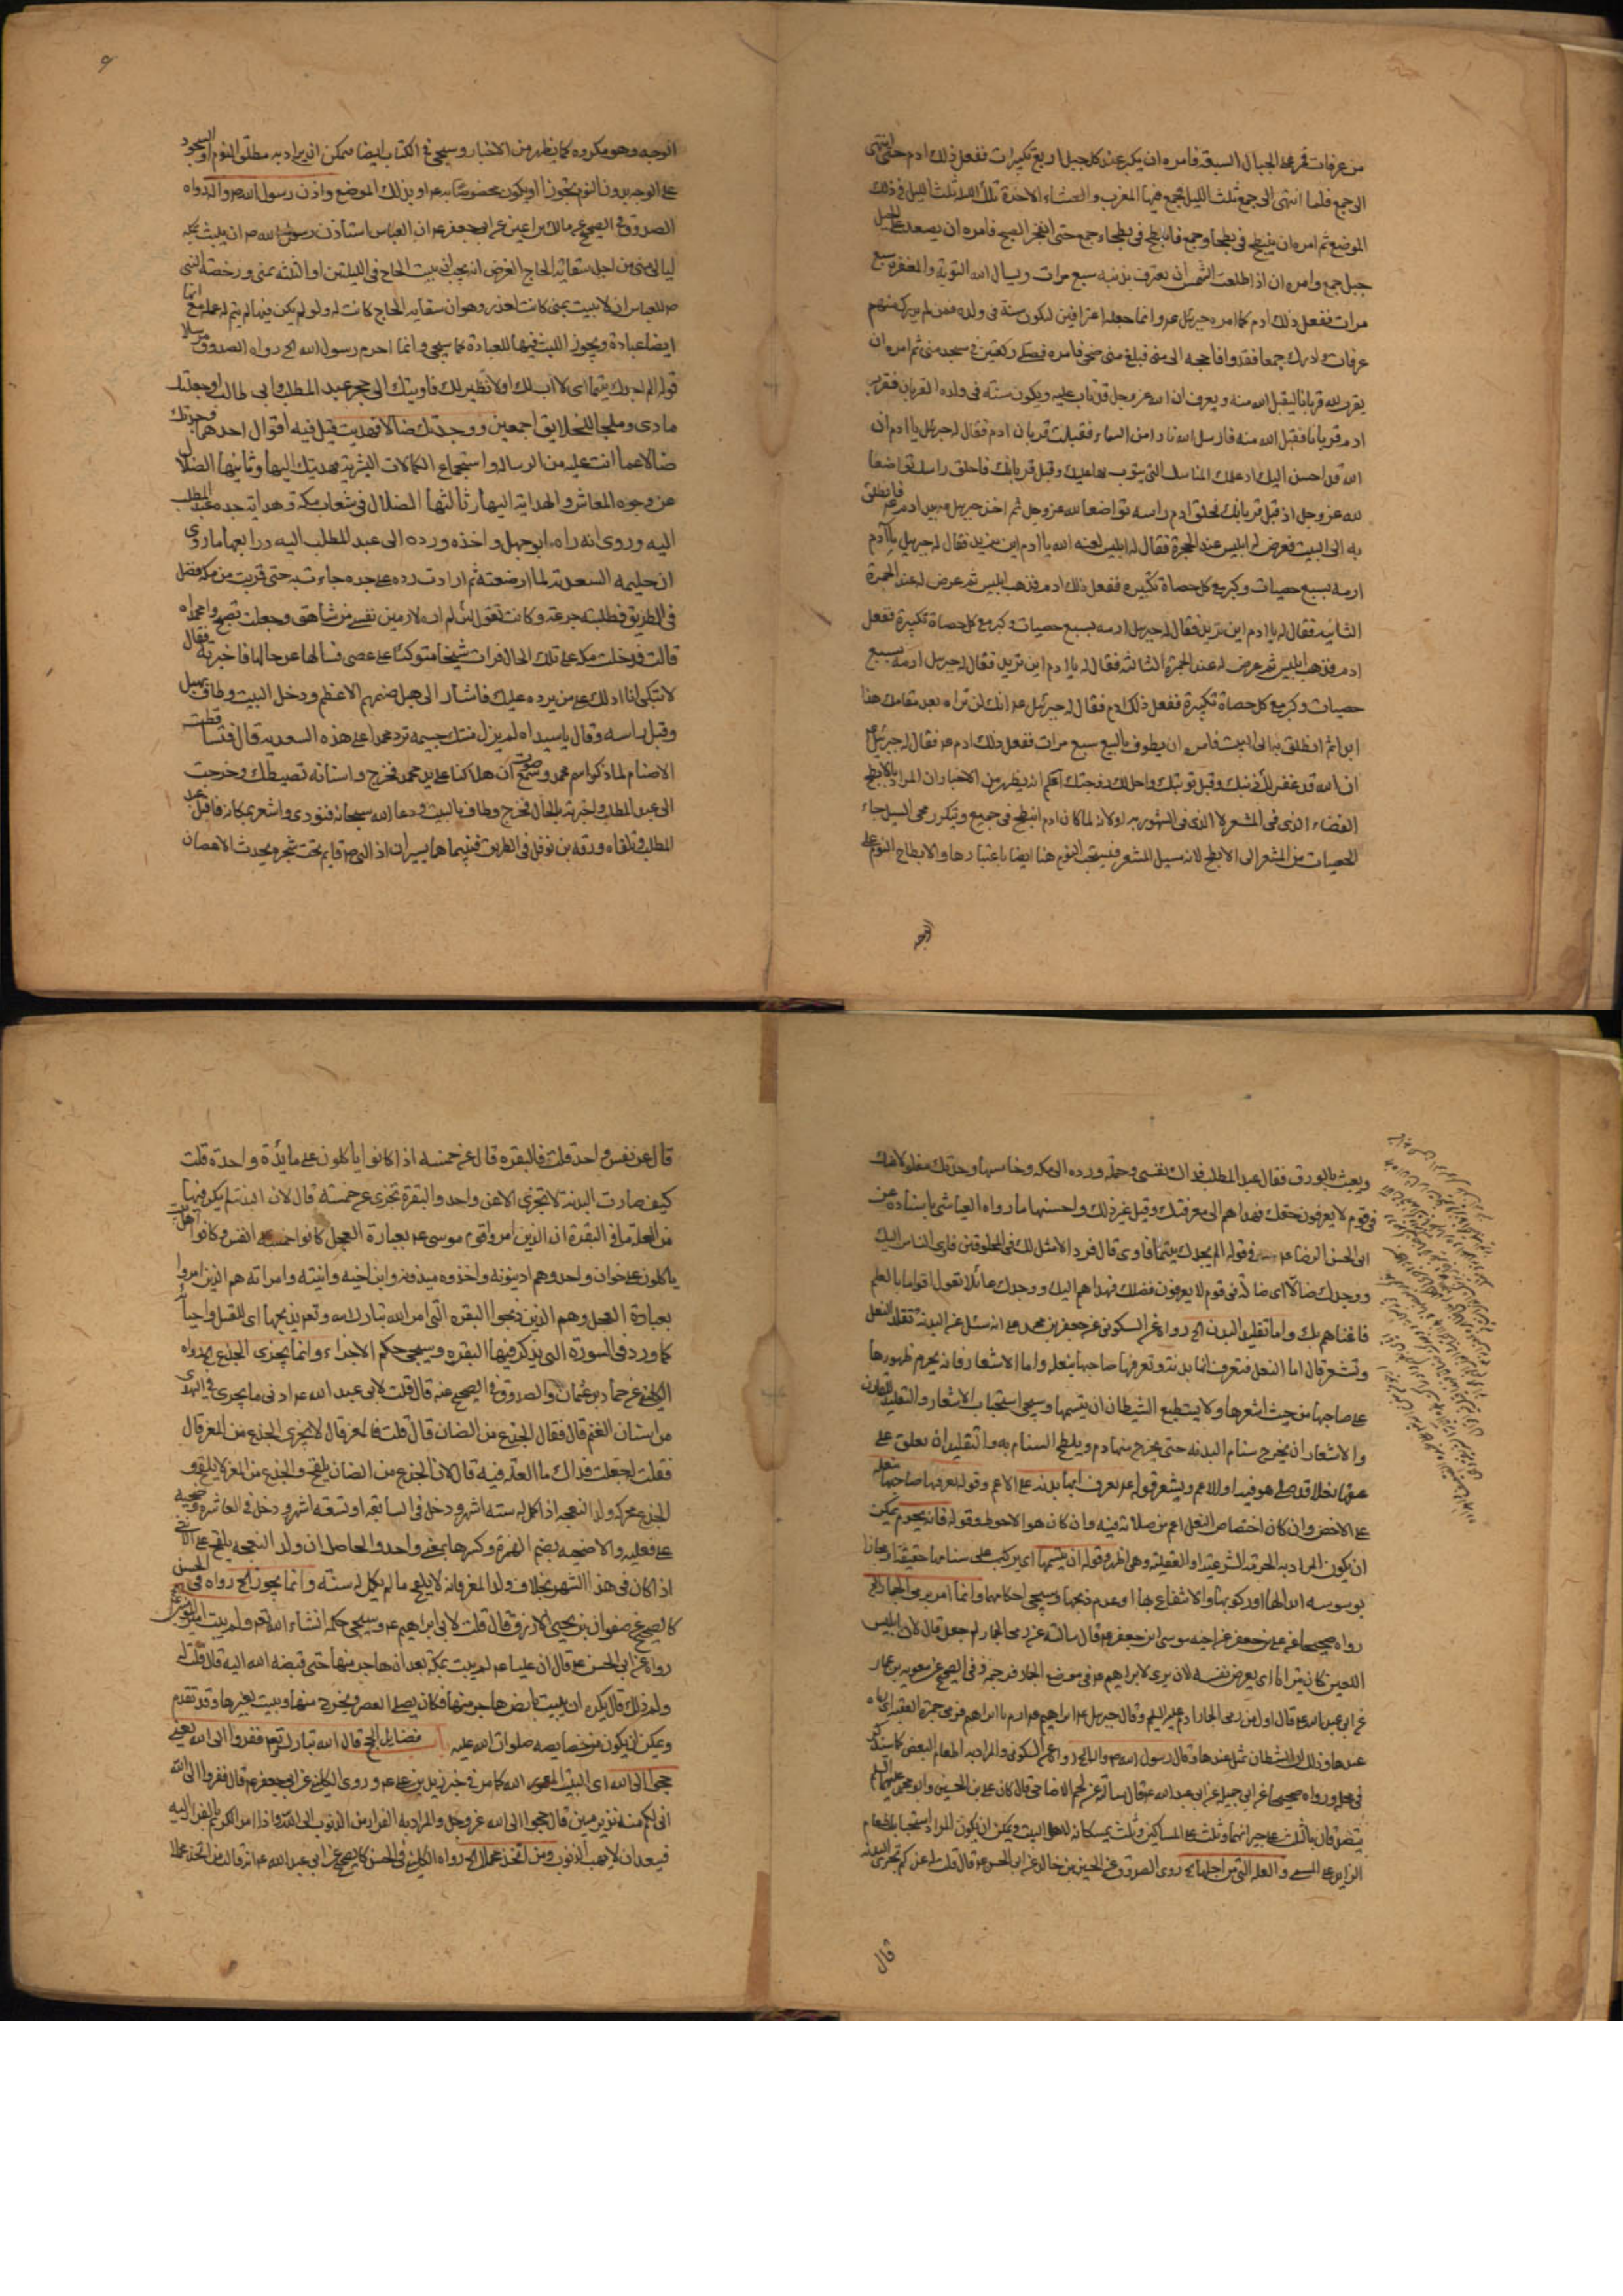 من عرفات فمر على الجبال السبعة فامره ان يكبر عند كل جبل اربع تكبيرات ففعل ذلك ادم حتى انتهى
الى جمع فلما انتهى الى جمع ثلث الليل فجمع فيها المغرب والعشاء الاخرة تلك الليلة ثلث الليل في ذلك
الموضع ثم امره ان ينبطح في بطحاء جمع فانبطح في بطحاء جمع حتى انفجر الصبح فامره ان يصعد على الجبل
جبل جمع وامره ان اذا طلعت الشمس ان يعترف بذنبه سبع مرات ويسال الله التوبة والمغفرة سبع
مرات ففعل ذلك ادم كما امره جبرئيل ع وانما جعله اعترافين ليكون سنة في ولده فمن لم يدرك منهم
عرفات وادرك جمعا فقد وافا حجه الى منى فبلغ منى ضحى فامره فصلى ركعتين في مسجد منى ثم امره ان
يقرب لله قربانا ليقبل الله منه ويعرف ان الله عز وجل قد تاب عليه ويكون سنة في ولده القربان فقرب
ادم قربانا فقبل الله منه فارسل الله نارا من السماء فقبلت قربان ادم فقال له جبرئيل يا ادم ان
الله قد احسن اليك اذ علمك المناسك التي يتوب بها عليك وقبل قربانك فاحلق راسك تواضعا
لله عز وجل اذ قبل قربانك فحلق ادم راسه تواضعا لله عز وجل ثم اخذ جبرئيل بيد ادم ع فانطلق
به الى البيت فعرض له ابليس عند الجمرة فقال له ابليس لعنه الله يا ادم اين تريد فقال له جبرئيل يا آدم
ارمه بسبع حصيات وكبر مع كل حصاة تكبيرة ففعل ذلك ادم فذهب ابليس ثم عرض له عند الجمرة
الثانية فقال له يا ادم اين تريد فقال له جبرئيل ارمه بسبع حصيات وكبر مع كل حصاة تكبيرة ففعل
ادم فذهب ابليس ثم عرض له عند الجمرة الثالثة فقال له يا ادم اين تريد فقال له جبرئيل ارمه بسبع
حصيات وكبر مع كل حصاة تكبيرة ففعل ذلك ادم فقال له جبرئيل ع انك لن تراه بعد مقامك هذا
ابدا ثم انطلق به الى البيت فامره ان يطوف بالبيت سبع مرات ففعل ذلك ادم ع فقال له جبرئيل ع
ان الله قد غفر لك ذنبك وقبل توبتك واحل لك زوجتك اعلم انه يظهر من الاخبار ان المراد بالابطح
الفضاء الذي في المشعر لا الذي في المشهور به اولا نه لما كان ادم انبطح في جميع وتكرر مجى السيل جاء
الحصيات من المشعر الى الابطح لانه مسيل المشعر فيستحب النوم هنا ايضا باعتبارها والابطاح النوم على
الوجه
الوجه وهو مكروه كما يظهر من الاخبار وسيجى في الكتاب ايضا فيمكن ان يراد به مطلق النوم او السجود
على الوجه بدون النوم تجوزا او يكون مخصوصا به ع او بذلك الموضع واذن رسول الله ص واله رواه
الصدوق في الصحيح عن مالك بن اعين عن ابي جعفر ع ان العباس استاذن رسول الله ص ان يلبث بمكة
ليالى منى من اجل سقاية الحاج الغرض انه يجب ان يبيت الحاج في الليلتين او الثلثة بمنى ورخصة النبي
ص للعباس ان لا يبيت بمنى كانت لعذر وهو ان سقاية الحاج كانت له ولو لم يكن فيها لم يتم لهم عمله مع انها
ايضا عبادة ويجوز اللبث فيها للعبادة كما سيجى وانما احرم رسول الله الخ رواه الصدوق مرسلا
قوله الم يجدك يتيما اى لا اب لك او لا نظير لك فاويتك الى حجر عبد المطلب وابى طالب او جعلتك
ماوى وملجا للخلايق اجمعين ووجدتك ضالا فهديت قيل فيه اقوال احدها وجدتك
ضالا عما انت عليه من الرسالة واستجماع الكمالات البشرية فهديتك اليها وثانيها الضلال
عن وجوه المعاش والهداية اليها وثالثها الضلال في شعاب مكة وهداية جده عبد المطلب
اليه وروى انه راه ابو جهل واخذه ورده الى عبد المطلب اليه ورابعها ما روى
ان حليمة السعدية لما ارضعته ثم ارادت رده على جده جاءت به حتى قربت من مكة فضل
في الطريق فطلبته جزعة وكانت تقول لئن لم اره لارمين نفسي من شاهق وجعلت تصيح وا محمداه
قالت فدخلت مكة على تلك الحال فرات شيخا متوكئا على عصى فسالها عن حالها فاخبرته فقال
لا تبكى انا ادلك على من يرده عليك فاشار الى هبل صنمهم الاعظم ودخل البيت وطاف بهبل
وقبل راسه وقال يا سيداه لم يزل منتك جسيمة ترد محمدا على هذه السعدية قال فتساقطت
الاصنام لما ذكر اسم محمد وسمع صوت ان هلاكنا على يد محمد فخرج واسنانه تصيطك وخرجت
الى عبد المطلب واخبرته بالحال فخرج وطاف بالبيت ودعا الله سبحانه فنودى واشعر بمكانه فاقبل عبد
المطلب وتلقاه ورقة بن نوفل في الطريق فبينما هما يسيران اذا النبي ص قايم تحت شجرة يجذب الاغصان
ويعبث بالورق فقال عبد المطلب فداك نفسي وحمله ورده الى مكة وخامسها وجدتك مضلولا عنك
في قوم لا يعرفون حقك فهداهم الى معرفتك وقيل غير ذلك واحسنها ما رواه العياشى باسناده عن
ابى الحسن الرضا ع في قوله الم يجدك يتيما فاوى قال فردا لا مثل لك في المخلوقين فاوى الناس اليك
ووجدك ضالا اى ضالة في قوم لا يعرفون فضلك فهداهم اليك ووجدك عائلا تعول اقواما بالعلم
فاغناهم بك واما تقليد البدن الخ رواه عن السكونى عن جعفر بن محمد ع انه سئل عن البدنة تقلد النعل
وتشعر قال اما النعل فتعرف انها بدنة وتعرفها صاحبها بنعله واما الاشعار فانه يحرم ظهورها
على صاحبها من حيث اشعرها ولا يستطيع الشيطان ان يتسمها وسيجى استحباب الاشعار والتقليد للقارن
والاشعار ان يخرج سنام البدنة حتى يخرج منها دم ويلطخ السنام به والتقليد ان يعلق على
عنقها نعلا قد صلى هو فيه او للاعم ويشعر قوله ع يعرف انها بدنة على الاعم وقوله يعرفها صاحبها بنعله
على الاخص وان كان اختصاص النعل اعم من صلاته فيه وان كان هو الاحوط وقوله فانه يحرم يمكن
ان يكون المراد به الحرمة الشرعية او العقلية وهى اظهر وقوله ان يتسمها اى يركب على سنامها حقيقة او مجازا
بوسوسة ابدالها او ركوبها والانتفاع بها او عدم ذبحها وسيجى احكامها وانما امر برمى الجمار الخ
رواه صحيحا عن على بن جعفر عن اخيه موسى ابن جعفر ع قال سالته عن رمى الجمار لم جعل قال لان ابليس
اللعين كان يترااى اى يعرض نفسه لان يرى لابراهيم ع في موضع الجمار فرجمه وفى الصحيح عن معوية بن عمار
عن ابى عبد الله ع قال اول من رمى الجمار ادم عليه السلام وقال جبرئيل ع ابراهيم ع ارم يا ابراهيم فرمى جمرة العقبة
عندها وذلك ان الشيطان تمثل عندها وقال رسول الله ص وانما الخ رواه عن السكونى والمراد به اطعام البعض كما سنذكر
في محله ورواه صحيحا عن ابى جميلة عن ابى عبد الله ع قال سالته عن لحم الاضاحى قال كان على بن الحسين وابو جعفر عليهما السلام
يتصدقان بالثلث على جيرانهما وثلث على المساكين وثلث يمسكانه لاهل البيت ويمكن ان يكون المراد استحباب اطعام
الزايد على المسمى والعلة التى من اجلها الخ روى الصدوق عن الحسين بن خالد عن ابى الحسن ع قال قلت له عن كم تجزى البدنة
قال
قال عن نفس واحدة قلت فالبقرة قال عن خمسة اذا كانوا ياكلون على مائدة واحدة قلت
كيف صارت البدنة لا تجزى الا عن واحد والبقرة تجزى عن خمسة قال لان البدنة لم يكن فيها
من العلة ما في البقرة ان الذين امروا قوم موسى ع بعبادة العجل كانوا خمسة انفس وكانوا اهل بيت
ياكلون على خوان واحد وهم اذينونة واخذوه ميذونه وابن اخيه وابنته وامراته هم الذين امروا
بعبادة العجل وهم الذين ذبحوا البقرة التى امر الله تبارك الله وتعالى بذبحها اى للقسل واجبا
كما ورد في السورة التى يذكر فيها البقرة وسيجى حكم الاجزاء وانما يجزى الجذع الخ رواه
الكلينى عن حماد بن عثمان والصدوق في الصحيح عنه قال قلت لابى عبد الله ع ادنى ما يجزى في الهدى
من اسنان الغنم قال فقال الجذع من الضان قال قلت فالمعز قال لا يجزى الجذع من المعز قال
فقلت له جعلت فداك ما العلة فيه قال لان الجذع من الضان يلقح والجذع من المعز لا يلقح و
الجذع محركة ولد النعجة اذا كمل له ستة اشهر ودخل في السابعة او تسعة اشهر ودخل في العاشرة وضحية
على فعلية والاضحية بضم الهمزة وكسرها بمعنى واحد والحاصل ان ولد النعجة يلقح على الانثى
اذا كان في هذا الشهر بخلاف ولد المعز فانه لا يلقح ما لم يكمل له سنة وانما يجوز الخ رواه في الحسن
كالصحيح عن صفوان بن يحيى الازرق قال قلت لابى ابراهيم ع وسيجى حكمه انشاء الله تعالى ولم يبت امير المؤمنين ع
رواه عن ابى الحسن ع قال ان عليا ع لم يبت بمكة بعد ان هاجر منها حتى قبضه الله اليه قال قلت له
ولم ذلك قال يكره ان يبيت بارض هاجر منها فكان يصلى العصر ويخرج منها ويبيت بغيرها وقد تقدم
ويمكن ان يكون من خصايصه صلوات الله عليه باب فضايل الحج قال الله تبارك وتعالى ففروا الى الله يعنى
حجوا الى الله اى البيت المعمور الله كما مر في خبر زيد بن على ع وروى الكلينى عن ابى جعفر ع قال ففروا الى الله
انى لكم منه نذير مبين قال حجوا الى الله عز وجل والمراد به الفرار من الذنوب الى الله واذا امر الكريم بالفرار اليه
فبعيد ان لا يهب الذنوب ومن اتخذ محملا الخ رواه الكلينى في الحسن كالصحيح عن ابى عبد الله ع انه قال من اتخذ محملا